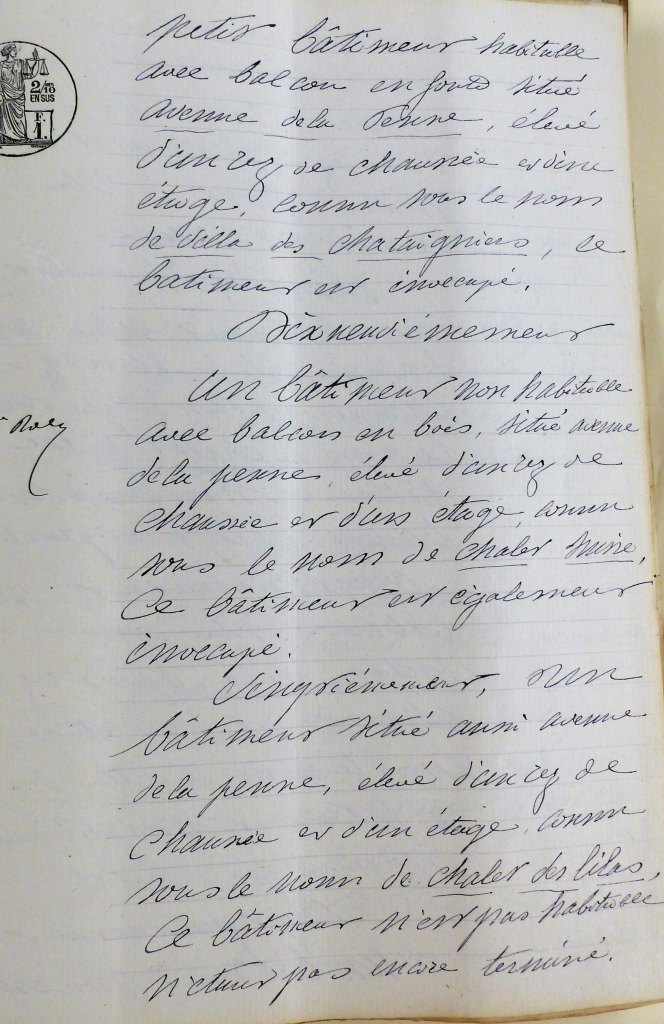 2/10
EN SUS
F.
1.
petit bâtiment habitable
avec balcon en fonte situé
avenue de la Penne, élevé
d'un rez de chaussée et d'un
étage, connu sous le nom
de villa des chataigniers, ce
batiment est inoccupé.
Dixneuvièmement
Un bâtiment non habitable
avec balcon en bois, situé avenue
de la penne, élevé d'un rez de
chaussée et d'un étage, connu
sous le nom de chalet suisse,
Ce bâtiment est également
inoccupé.
Vingtièmement, Un
bâtiment situé aussi avenue
de la penne, élevé d'un rez de
chaussée et d'un étage, connu
sous le nom de chalet des lilas,
Ce bâtiment n'est pas habitable
n'étant pas encore terminé.